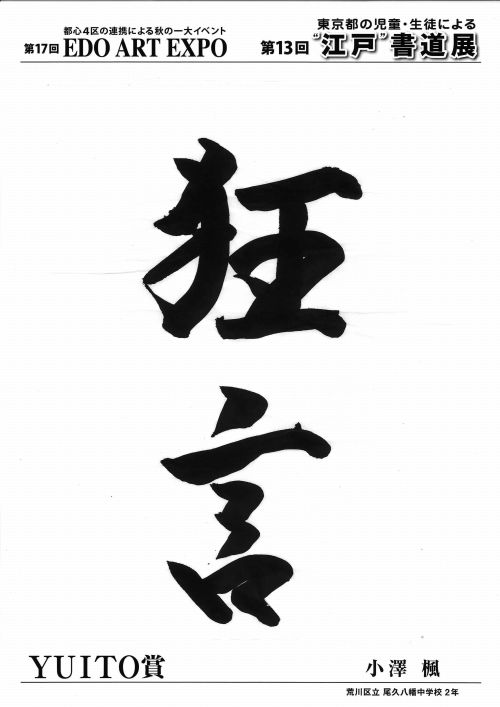 都心4区の連携による秋の一大イベント
第17回 EDO ART EXPO
東京都の児童・生徒による
第13回 “江戸”書道展
狂言
YUITO賞
小澤 楓
荒川区立 尾久八幡中学校 2年